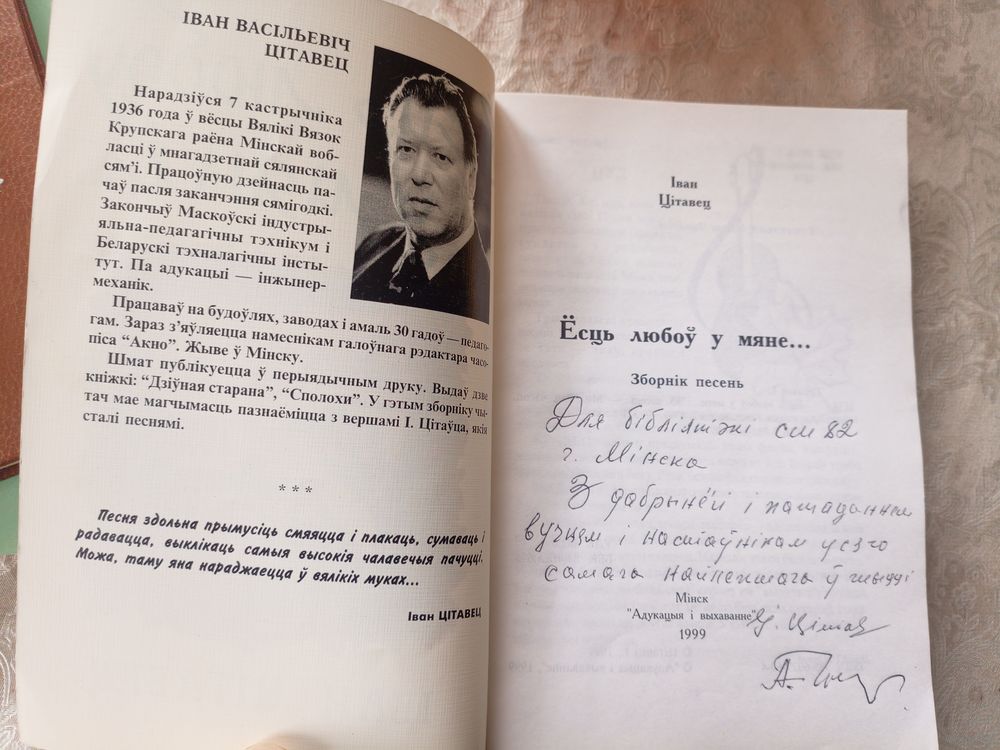 ІВАН ВАСІЛЬЕВІЧ
ЦІТАВЕЦ
Нарадзіўся 7 кастрычніка
1936 года ў вёсцы Вялікі Вязок
Крупскага раёна Мінскай воб-
ласці ў мнагадзетнай сялянскай
сям'і. Працоўную дзейнасць па-
чаў пасля заканчэння сямігодкі.
Закончыў Маскоўскі індустры-
яльна-педагагічны тэхнікум і
Беларускі тэхналагічны інсты-
тут. Па адукацыі — інжынер-
механік.
Працаваў на будоўлях, заводах і амаль 30 гадоў — педаго-
гам. Зараз з'яўляецца намеснікам галоўнага рэдактара часо-
піса “Акно”. Жыве ў Мінску.
Шмат публікуецца ў перыядычным друку. Выдаў дзве
кніжкі: “Дзіўная старана”, “Сполохи”. У гэтым зборніку чы-
тач мае магчымасць пазнаёміцца з вершамі І. Цітаўца, якія
сталі песнямі.
* * *
Песня здольна прымусіць смяяцца і плакаць, сумаваць і
радавацца, выклікаць самыя высокія чалавечыя пачуцці.
Можа, таму яна нараджаецца ў вялікіх муках...
Іван ЦІТАВЕЦ
Іван
Цітавец
Ёсць любоў у мяне...
Зборнік песень
Для бібліятэкі сш 82
г. Мінска
З дабрынёй і пажаданнем
вучням і настаўнікам усяго
самага найлепшага ў жыцці
Мінск
"Адукацыя і выхаванне"
1999